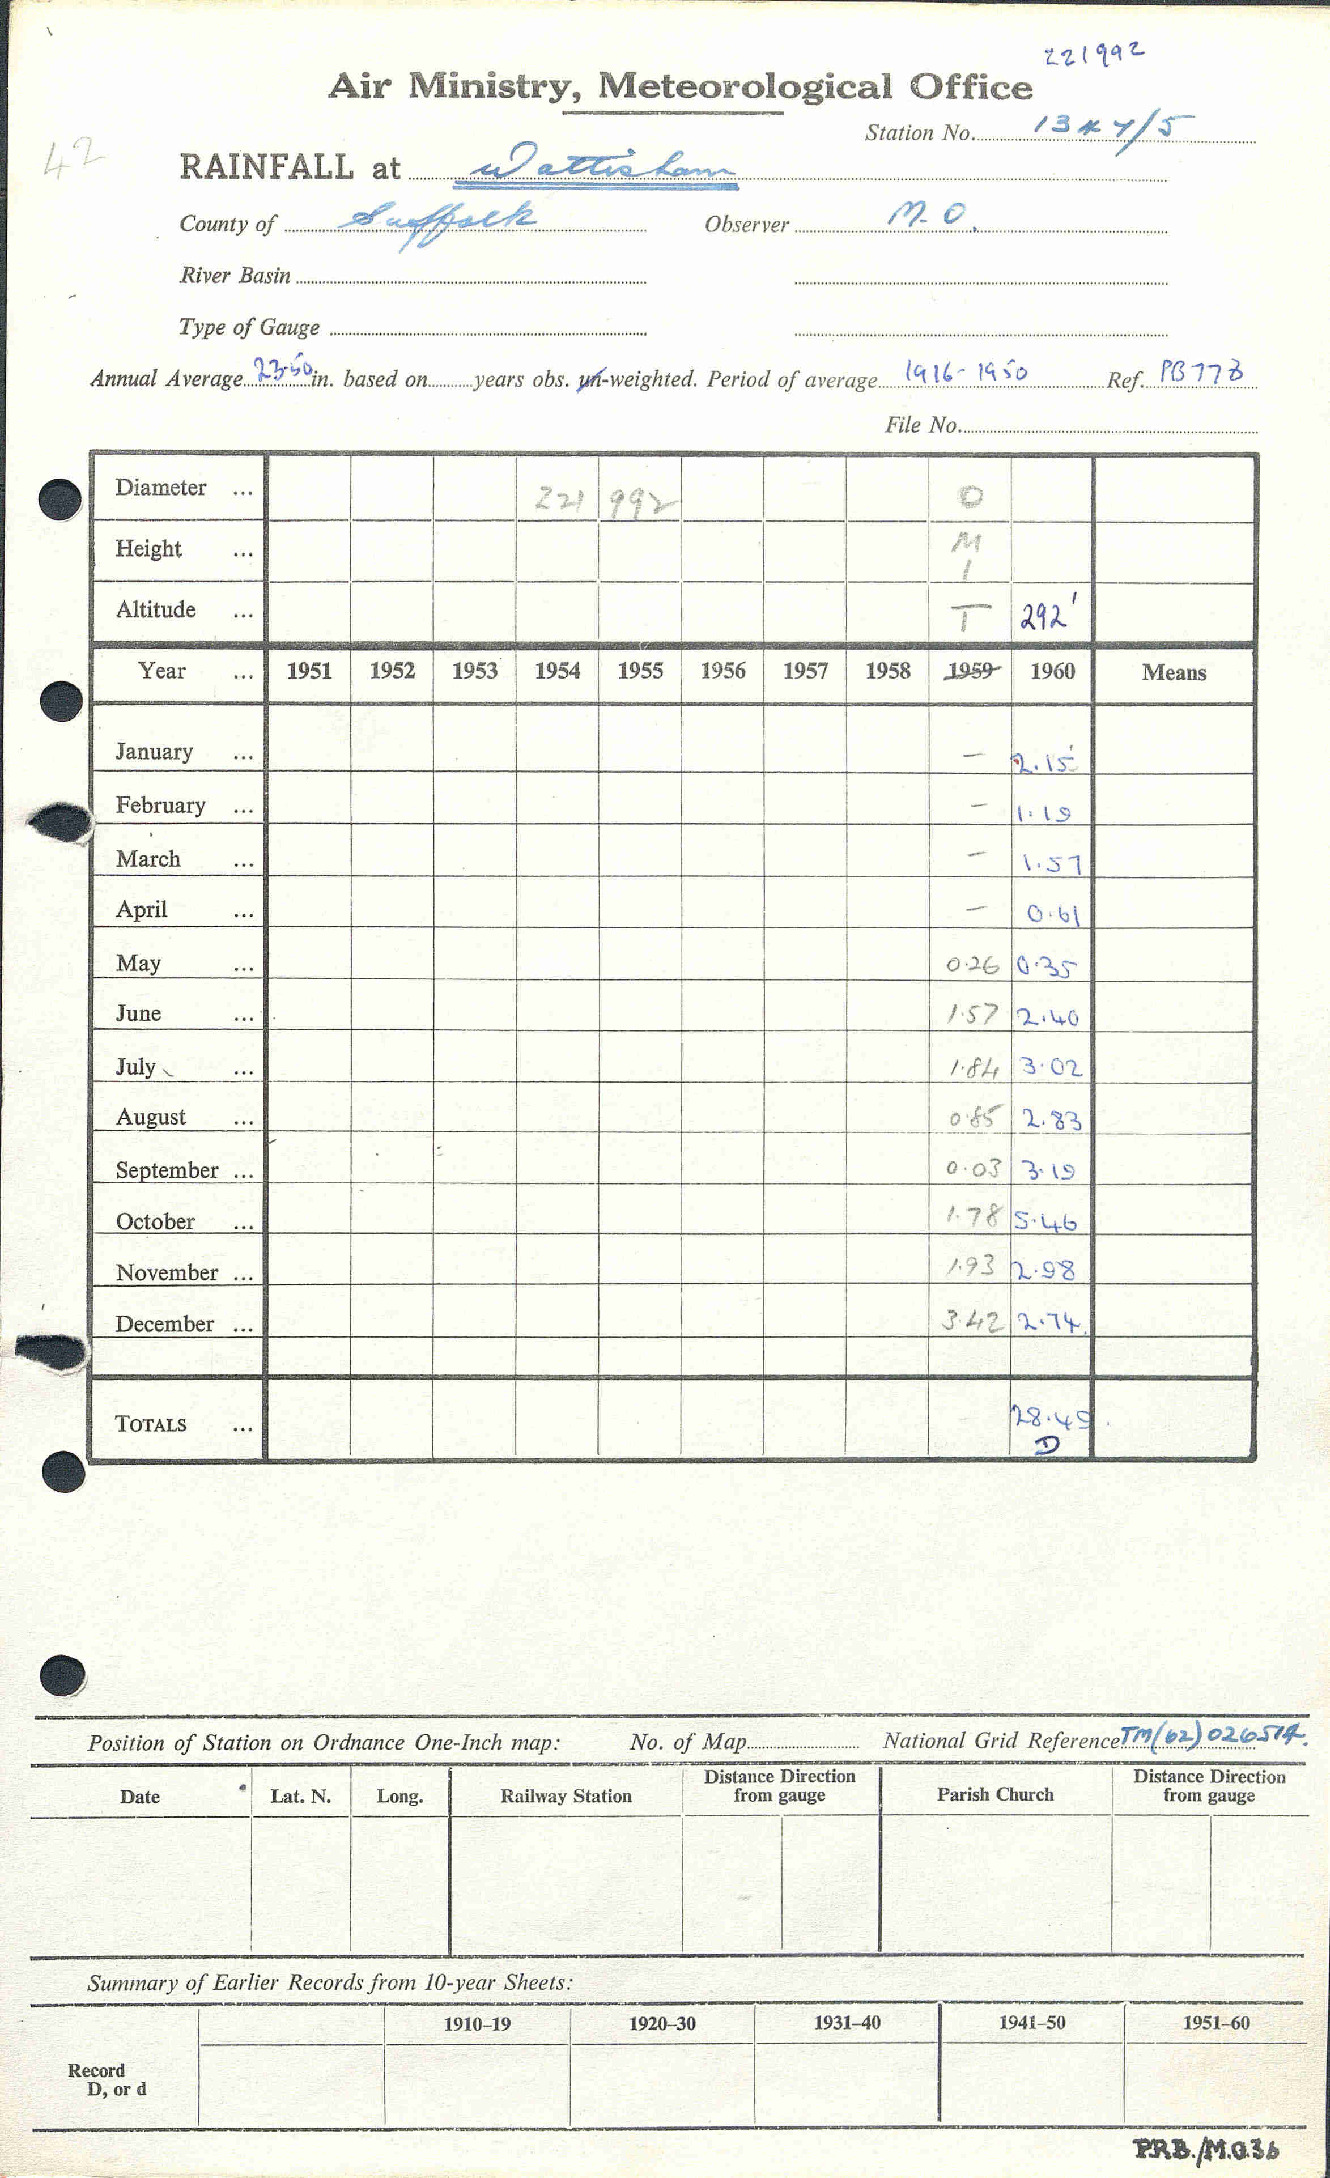 221992
Air Ministry, Meteorological Office
Station No. 13 * 7/5
42
RAINFALL at Wattisham
County of Suffolk Observer M.O.
River Basin
Type of Gauge
Annual Average 23.50 in. based on years obs. un-weighted. Period of average 1916-1950 Ref.
File No.
Diameter ... 221 992 O
Height ... M
I
Altitude ... T 292'
Year ... 1951 1952 1953 1954 1955 1956 1957 1958 1959 1960 Means
January ... – 2.15
February ... – 1.19
March ... – 1.57
April ... – 0.61
May ... 0.26 0.35
June ... 1.57 2.40
July ... 1.84 3.02
August ... 0.85 2.83
September ... 0.03 3.19
October ... 1.78 5.46
November ... 1.93 2.98
December ... 3.42 2.74
TOTALS ... 28.49
D
Position of Station on Ordnance One-Inch map: No. of Map National Grid Reference TM(62) 026514
Date Lat. N. Long. Railway Station Distance Direction from gauge Parish Church Distance Direction from gauge
Summary of Earlier Records from 10-year Sheets:
1910–19 1920–30 1931–40 1941–50 1951–60
Record
D, or d
PRB./M.O.36